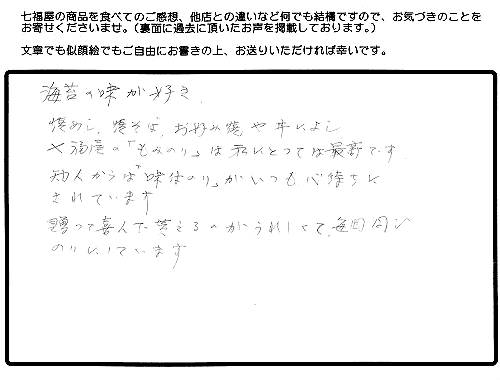 七福屋の商品を食べてのご感想、他店との違いなど何でも結構ですので、お気づきのことを
お寄せくださいませ。（裏面に過去に頂いたお声を掲載しております。）
文章でも似顔絵でもご自由にお書きの上、お送りいただければ幸いです。
海苔の味が好き、
焼めし、焼そば、お好み焼や丼によし
七福屋の「もみのり」は私にとっては最高です。
知人からは「味付のり」がいつも心待ちに
されています
贈って喜んで貰えるのがうれしくて、毎回同じ
のりにしています